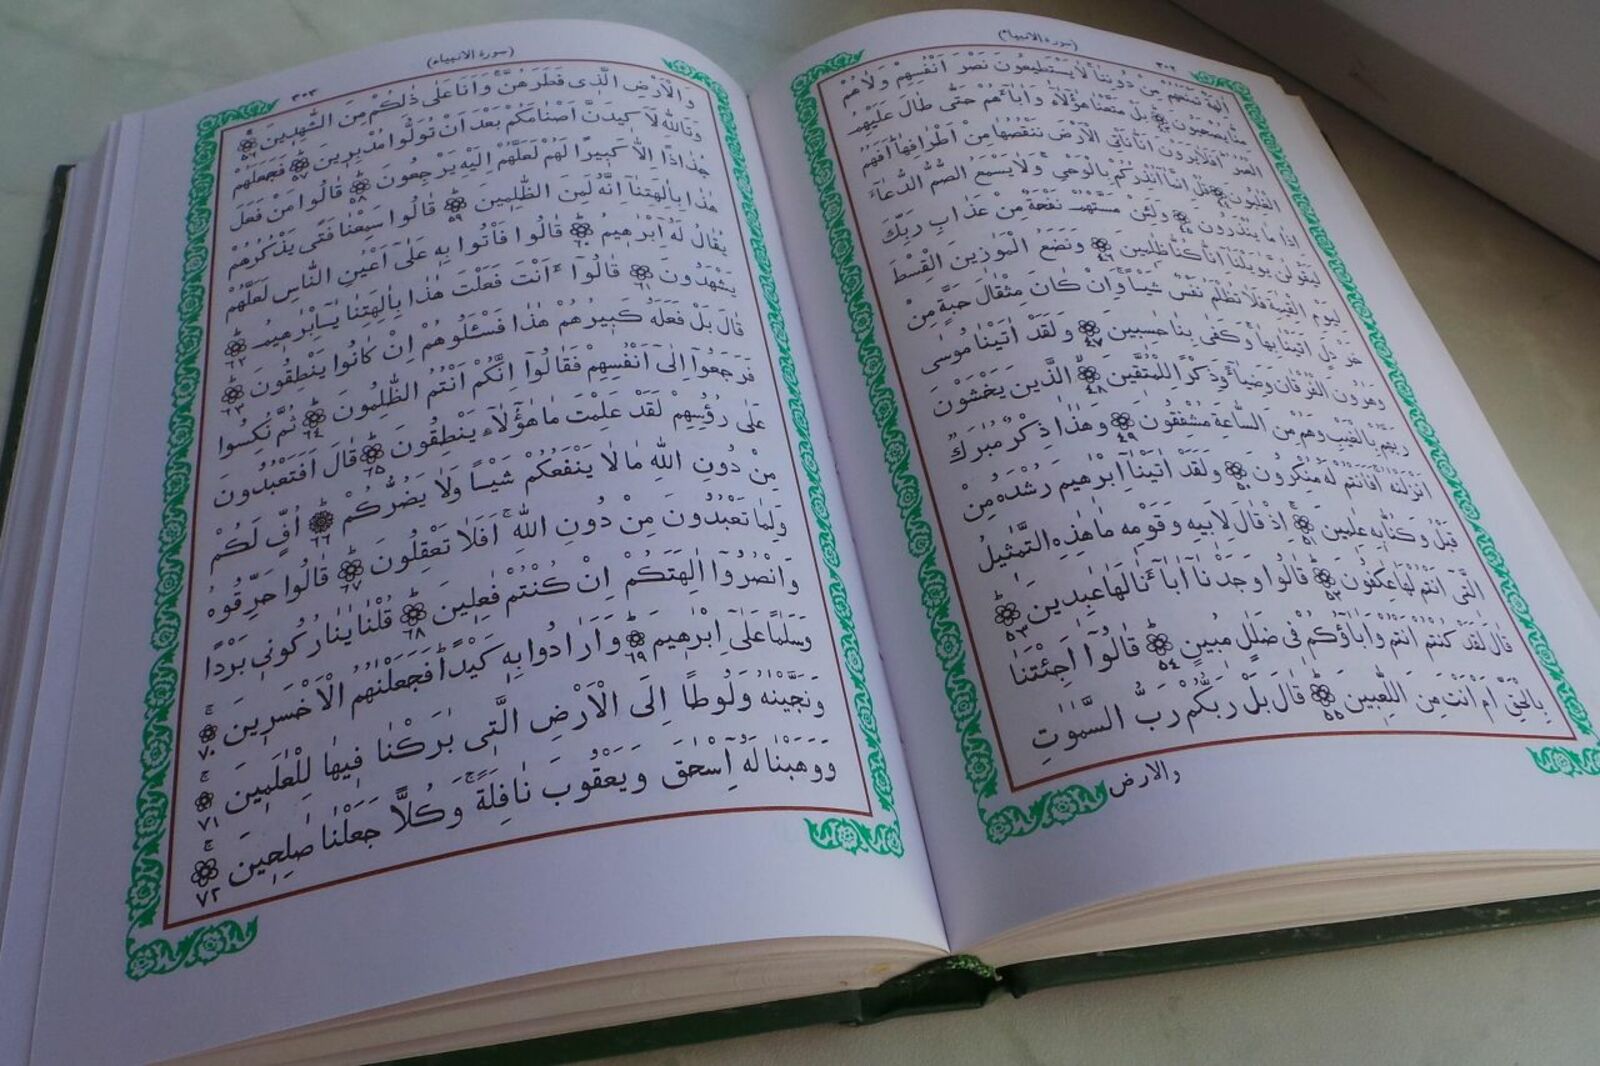 (سورة الانبياء)
٣٠٢
اٰلِهَةٌ تَمْنَعُهُمْ مِنْ دُونِنَاۜ لَا يَسْتَطٖيعُونَ نَصْرَ اَنْفُسِهِمْ وَلَا هُمْ
مِنَّا يُصْحَبُونَ ٤٣ بَلْ مَتَّعْنَا هٰٓؤُ۬لَٓاءِ وَاٰبَٓاءَهُمْ حَتّٰى طَالَ عَلَيْهِمُ
الْعُمُرُۜ اَفَلَا يَرَوْنَ اَنَّا نَأْتِى الْاَرْضَ نَنْقُصُهَا مِنْ اَطْرَافِهَاۜ اَفَهُمُ
الْغَالِبُونَ ٤٤ قُلْ اِنَّمَٓا اُنْذِرُكُمْ بِالْوَحْىِۘ وَلَا يَسْمَعُ الصُّمُّ الدُّعَٓاءَ
اِذَا مَا يُنْذَرُونَ ٤٥ وَلَئِنْ مَسَّتْهُمْ نَفْحَةٌ مِنْ عَذَابِ رَبِّكَ
لَيَقُولُنَّ يَا وَيْلَنَٓا اِنَّا كُنَّا ظَالِمٖينَ ٤٦ وَنَضَعُ الْمَوَازٖينَ الْقِسْطَ
لِيَوْمِ الْقِيٰمَةِ فَلَا تُظْلَمُ نَفْسٌ شَيْـًٔاۜ وَاِنْ كَانَ مِثْقَالَ حَبَّةٍ مِنْ
خَرْدَلٍ اَتَيْنَا بِهَاۜ وَكَفٰى بِنَا حَاسِبٖينَ ٤٧ وَلَقَدْ اٰتَيْنَا مُوسٰى
وَهٰرُونَ الْفُرْقَانَ وَضِيَٓاءً وَذِكْرًا لِلْمُتَّقٖينَ ٤٨ اَلَّذٖينَ يَخْشَوْنَ
رَبَّهُمْ بِالْغَيْبِ وَهُمْ مِنَ السَّاعَةِ مُشْفِقُونَ ٤٩ وَهٰذَا ذِكْرٌ مُبَارَكٌ
اَنْزَلْنَاهُۜ اَفَاَنْتُمْ لَهُ مُنْكِرُونَ ٥٠ وَلَقَدْ اٰتَيْنَٓا اِبْرٰهٖيمَ رُشْدَهُ مِنْ
قَبْلُ وَكُنَّا بِهٖ عَالِمٖينَ ٥١ اِذْ قَالَ لِاَبٖيهِ وَقَوْمِهٖ مَا هٰذِهِ التَّمَاثٖيلُ
الَّتٖٓى اَنْتُمْ لَهَا عَاكِفُونَ ٥٢ قَالُوا وَجَدْنَٓا اٰبَٓاءَنَا لَهَا عَابِدٖينَ ٥٣
قَالَ لَقَدْ كُنْتُمْ اَنْتُمْ وَاٰبَٓاؤُ۬كُمْ فٖى ضَلَالٍ مُبٖينٍ ٥٤ قَالُٓوا اَجِئْتَنَا
بِالْحَقِّ اَمْ اَنْتَ مِنَ اللَّاعِبٖينَ ٥٥ قَالَ بَلْ رَبُّكُمْ رَبُّ السَّمٰوَاتِ
والارض
(سورة الانبياء)
٣٠٣
وَالْاَرْضِ الَّذٖى فَطَرَهُنَّۘ وَاَنَا عَلٰى ذٰلِكُمْ مِنَ الشَّاهِدٖينَ ٥٦
وَتَاللّٰهِ لَاَكٖيدَنَّ اَصْنَامَكُمْ بَعْدَ اَنْ تُوَلُّوا مُدْبِرٖينَ ٥٧ فَجَعَلَهُمْ
جُذَاذًا اِلَّا كَبٖيرًا لَهُمْ لَعَلَّهُمْ اِلَيْهِ يَرْجِعُونَ ٥٨ قَالُوا مَنْ فَعَلَ
هٰذَا بِاٰلِهَتِنَٓا اِنَّهُ لَمِنَ الظَّالِمٖينَ ٥٩ قَالُوا سَمِعْنَا فَتًى يَذْكُرُهُمْ
يُقَالُ لَهُٓ اِبْرٰهٖيمُ ٦٠ قَالُوا فَأْتُوا بِهٖ عَلٰٓى اَعْيُنِ النَّاسِ لَعَلَّهُمْ
يَشْهَدُونَ ٦١ قَالُٓوا ءَاَنْتَ فَعَلْتَ هٰذَا بِاٰلِهَتِنَا يَٓا اِبْرٰهٖيمُ ٦٢
قَالَ بَلْ فَعَلَهُ كَبٖيرُهُمْ هٰذَا فَسْـَٔلُوهُمْ اِنْ كَانُوا يَنْطِقُونَ ٦٣
فَرَجَعُٓوا اِلٰٓى اَنْفُسِهِمْ فَقَالُٓوا اِنَّكُمْ اَنْتُمُ الظَّالِمُونَ ٦٤ ثُمَّ نُكِسُوا
عَلٰى رُؤُ۫سِهِمْ لَقَدْ عَلِمْتَ مَا هٰٓؤُ۬لَٓاءِ يَنْطِقُونَ ٦٥ قَالَ اَفَتَعْبُدُونَ
مِنْ دُونِ اللّٰهِ مَا لَا يَنْفَعُكُمْ شَيْـًٔا وَلَا يَضُرُّكُمْ ٦٦ اُفٍّ لَكُمْ
وَلِمَا تَعْبُدُونَ مِنْ دُونِ اللّٰهِۜ اَفَلَا تَعْقِلُونَ ٦٧ قَالُوا حَرِّقُوهُ
وَانْصُرُٓوا اٰلِهَتَكُمْ اِنْ كُنْتُمْ فَاعِلٖينَ ٦٨ قُلْنَا يَا نَارُ كُونٖى بَرْدًا
وَسَلَامًا عَلٰٓى اِبْرٰهٖيمَ ٦٩ وَاَرَادُوا بِهٖ كَيْدًا فَجَعَلْنَاهُمُ الْاَخْسَرٖينَ ٧٠
وَنَجَّيْنَاهُ وَلُوطًا اِلَى الْاَرْضِ الَّتٖى بَارَكْنَا فٖيهَا لِلْعَالَمٖينَ ٧١
وَوَهَبْنَا لَهُٓ اِسْحٰقَ وَيَعْقُوبَ نَافِلَةًۜ وَكُلًّا جَعَلْنَا صَالِحٖينَ ٧٢